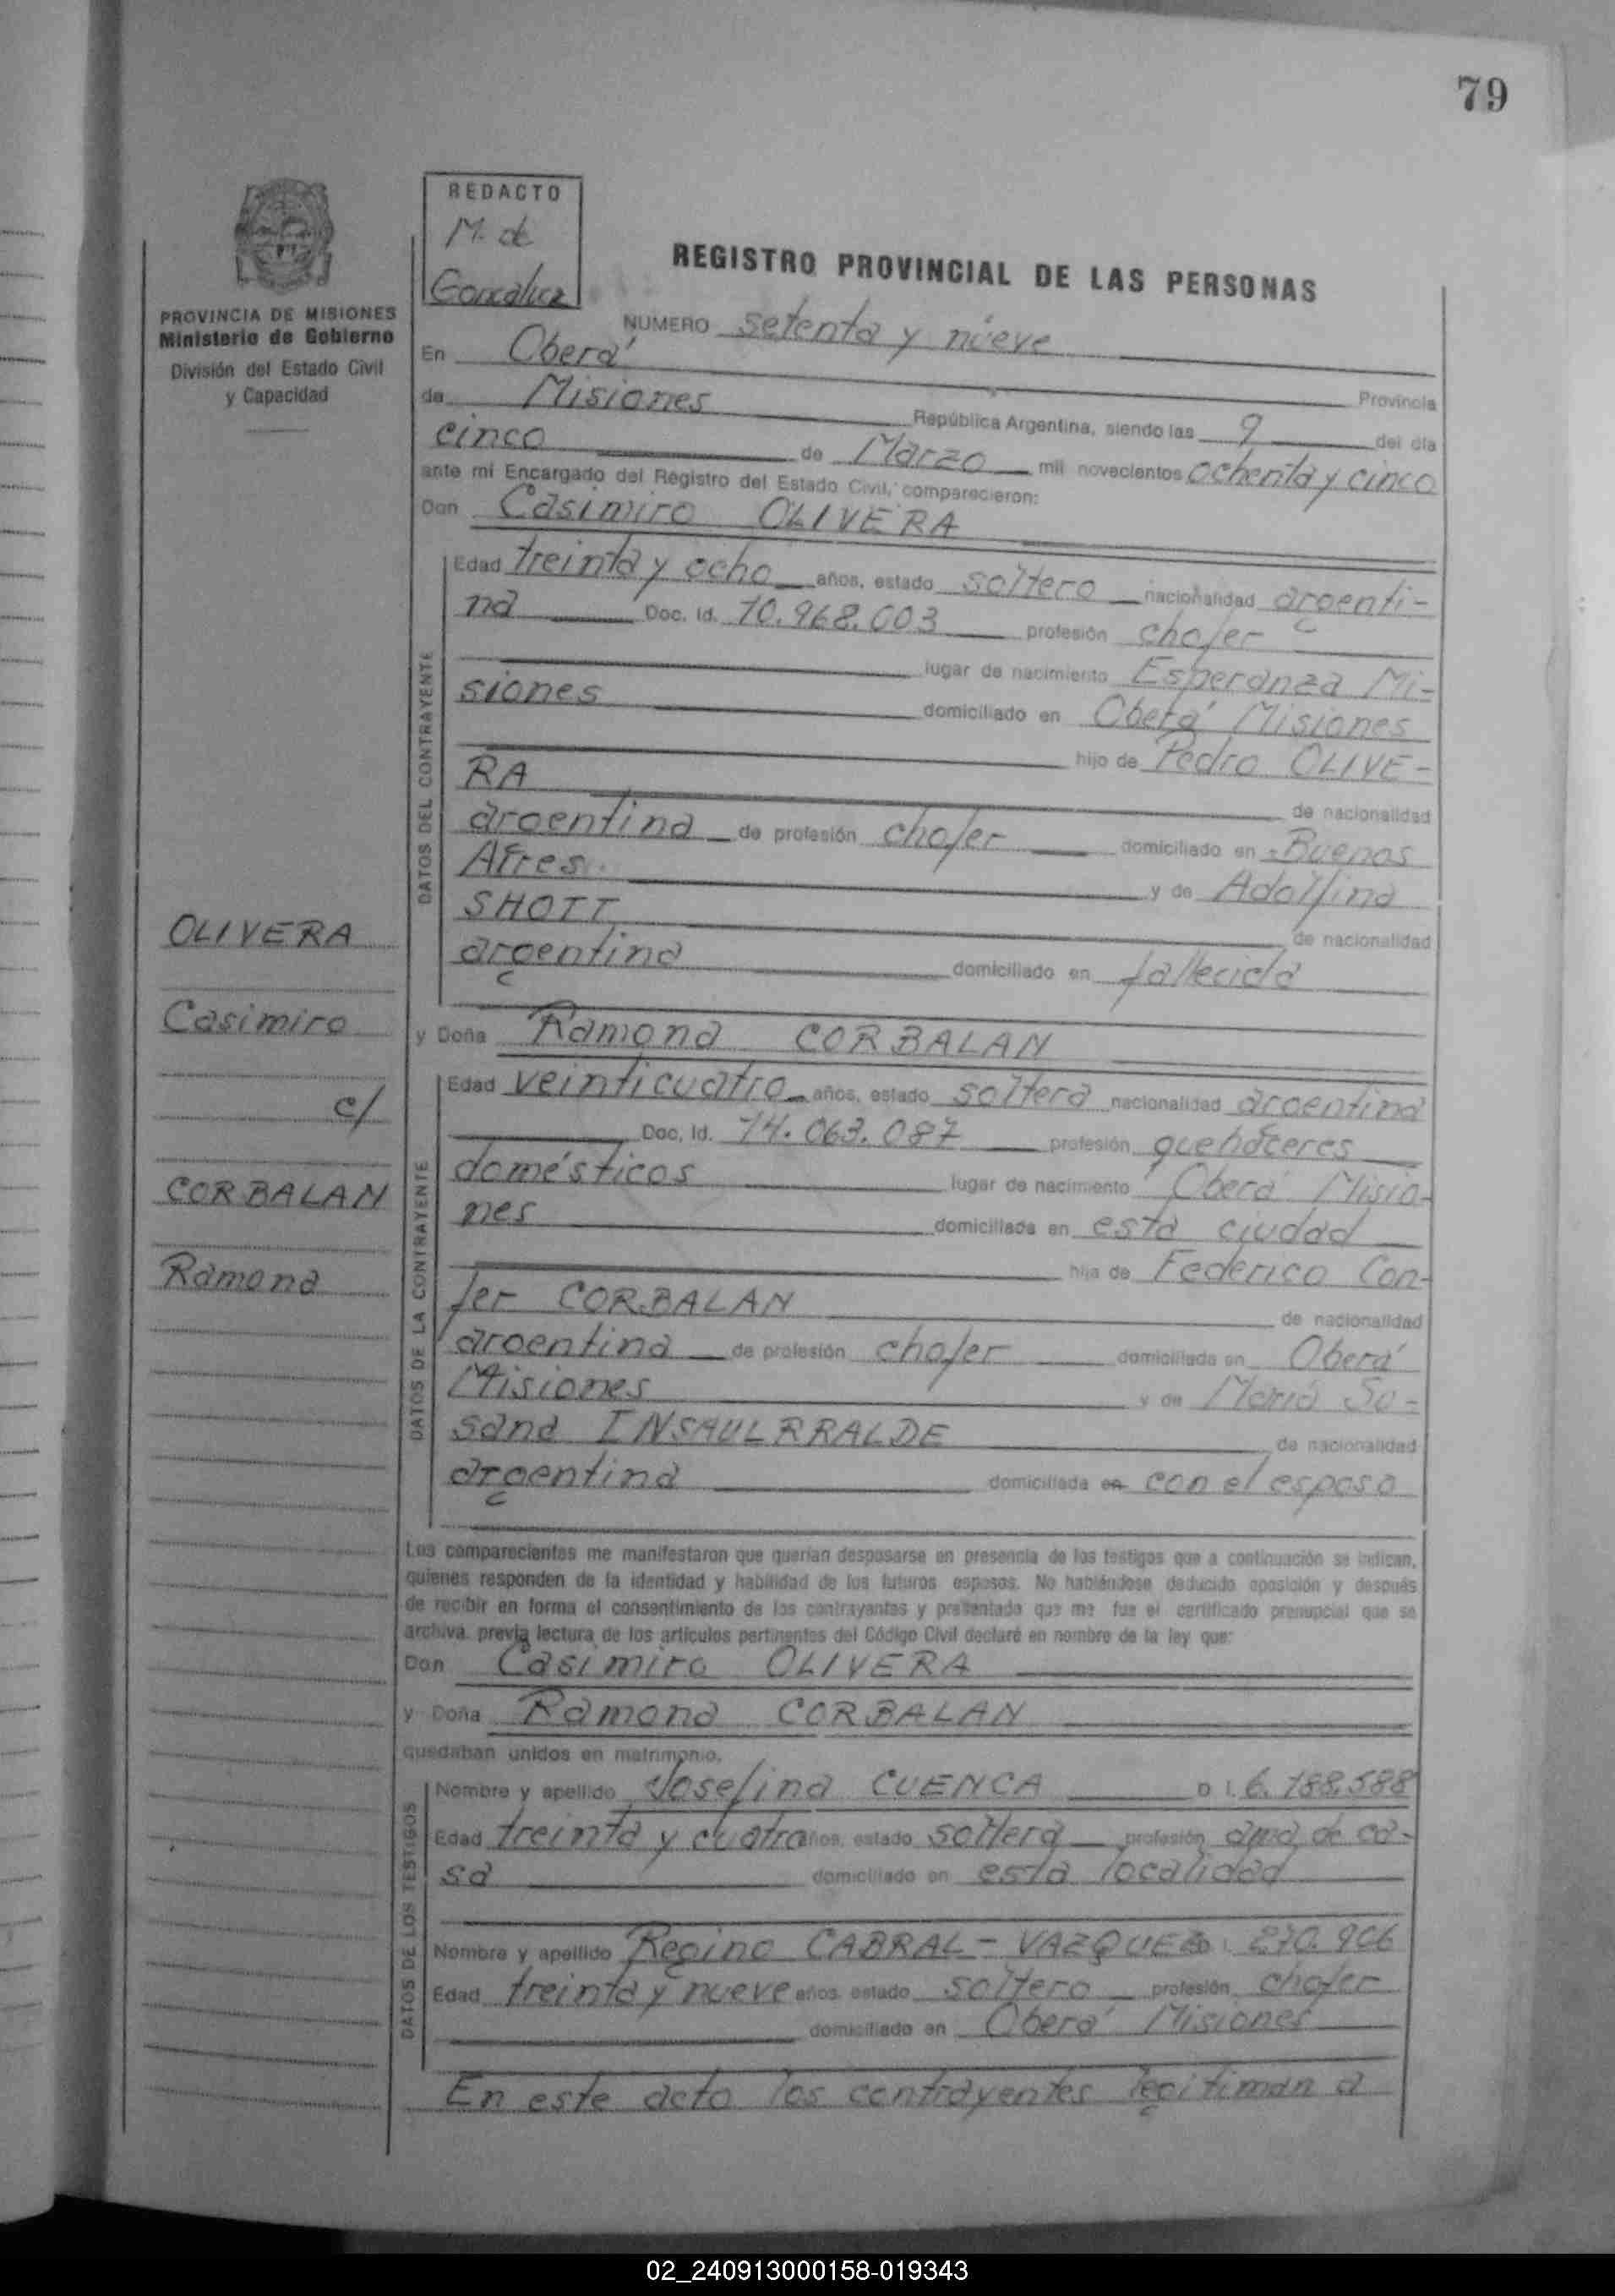 79
REDACTO
M. de
PROVINCIA DE MISIONES
Ministerio de Gobierno
División del Estado Civil
y Capacidad
REGISTRO PROVINCIAL DE LAS PERSONAS
NUMERO setenta y nueve
En Oberá Provincia
de Misiones República Argentina, siendo las 9 del día
cinco de Marzo mil novecientos ochenta y cinco
ante mi Encargado del Registro del Estado Civil, comparecieron:
Don Casimiro OLIVERA
DATOS DEL CONTRAYENTE
Edad treinta y ocho años, estado soltero nacionalidad argenti-
na Doc. Id. 10.968.003 profesión chofer
lugar de nacimiento Esperanza Mi-
siones domiciliado en Oberá Misiones
hijo de Pedro OLIVE-
RA de nacionalidad
argentina de profesión chofer domiciliado en Buenos
Aires. y de Adolfina
SHOTT de nacionalidad
argentina domiciliado en fallecida
y Doña Ramona CORBALAN
DATOS DE LA CONTRAYENTE
Edad veinticuatro años, estado soltera nacionalidad argentina
Doc. Id. 14.063.087 profesión quehaceres
domésticos lugar de nacimiento Oberá Misio-
nes domiciliada en esta ciudad
hija de Federico Con-
fer CORBALAN de nacionalidad
argentina de profesión chofer domiciliada en Oberá
Misiones y de María Su-
sana INSAULRRALDE de nacionalidad
argentina domiciliada en con el esposo
OLIVERA
Casimiro
c/
CORBALAN
Ramona
Los comparecientes me manifestaron que querían desposarse en presencia de los testigos que a continuación se indican,
quienes responden de la identidad y habilidad de los futuros esposos. No habiéndose deducido oposición y después
de recibir en forma el consentimiento de los contrayentes y presentado que me fue el certificado prenupcial que se
archiva, previa lectura de los artículos pertinentes del Código Civil declaré en nombre de la ley que:
Don Casimiro OLIVERA
y Doña Ramona CORBALAN
quedaban unidos en matrimonio.
DATOS DE LOS TESTIGOS
Nombre y apellido Josefina CUENCA D I. 6.188.588
Edad treinta y cuatro años, estado soltera profesión ama de ca-
sa domiciliado en esta localidad
Nombre y apellido Regino CABRAL-VAZQUEZ 270.906
Edad treinta y nueve años estado soltero profesión chofer
domiciliado en Oberá Misiones
En este acto los contrayentes legitiman a
02_240913000158-019343